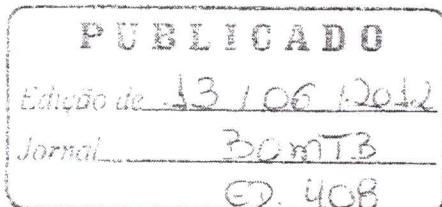 PUBLICADO
Edição de 13 / 06 / 2012
Jornal BOMTB
ED. 408